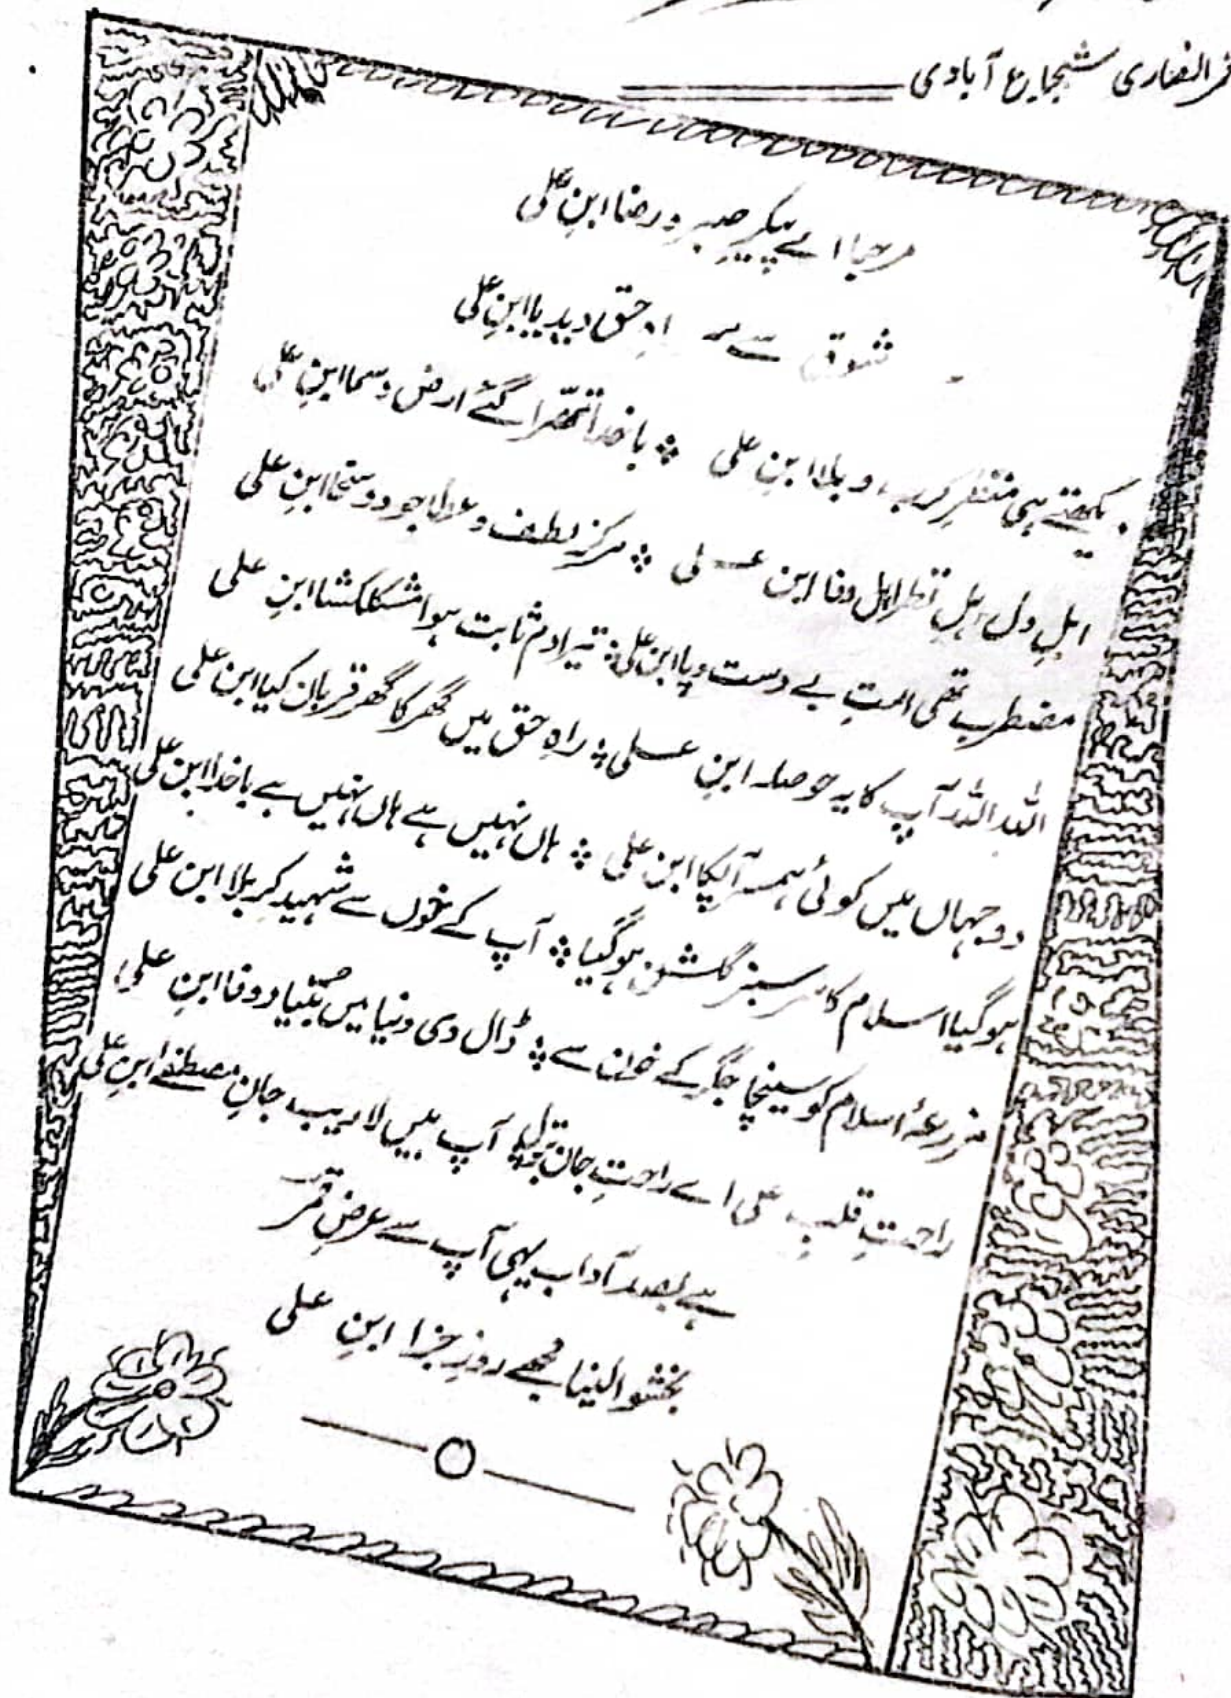 انصاری شجاع آبادی
مرحبا اے پیکرِ صبر و رضا ابنِ علی
شوق سے سر راہِ حق دیدیا ابنِ علی
دیکھتے ہی منظرِ کرب و بلا ابنِ علی ؞ باخدا تھّرا گئے ارض و سما ابنِ علی
اہلِ دل اہلِ نظر اہل وفا ابن عسلی ؞ مرکزِ لطف و عطا جود و سخا ابنِ علی
مضطرب تھی امتِ بے دست و پا ابنِ علی ؞ تیرا دم ثابت ہوا مشکلکشا ابنِ علی
اللہ اللہ آپ کا یہ حوصلہ ابنِ عسلی ؞ راہِ حق میں گھر کا گھر قربان کیا ابن علی
دو جہاں میں کوئی ہمسر آپکا ابن علی ؞ ہاں نہیں ہے ہاں نہیں ہے باخدا ابنِ علی
ہوگیا اسلام کا سرسبز گلشن ہوگیا ؞ آپ کے خوں سے شہیدِ کربلا ابن علی
مزرعۂ اسلام کو سینچا جگر کے خون سے ؞ ڈال دی دنیا میں بنیادِ وفا ابنِ علی
راحتِ قلبِ علی اے راحتِ جانِ بتول ؞ آپ ہیں لاریب جانِ مصطفےٰ ابنِ علی
ہے بصد آداب یہی آپ سے عرضِ قمر
بخشوا لینا مجھے روزِ جزا ابنِ علی